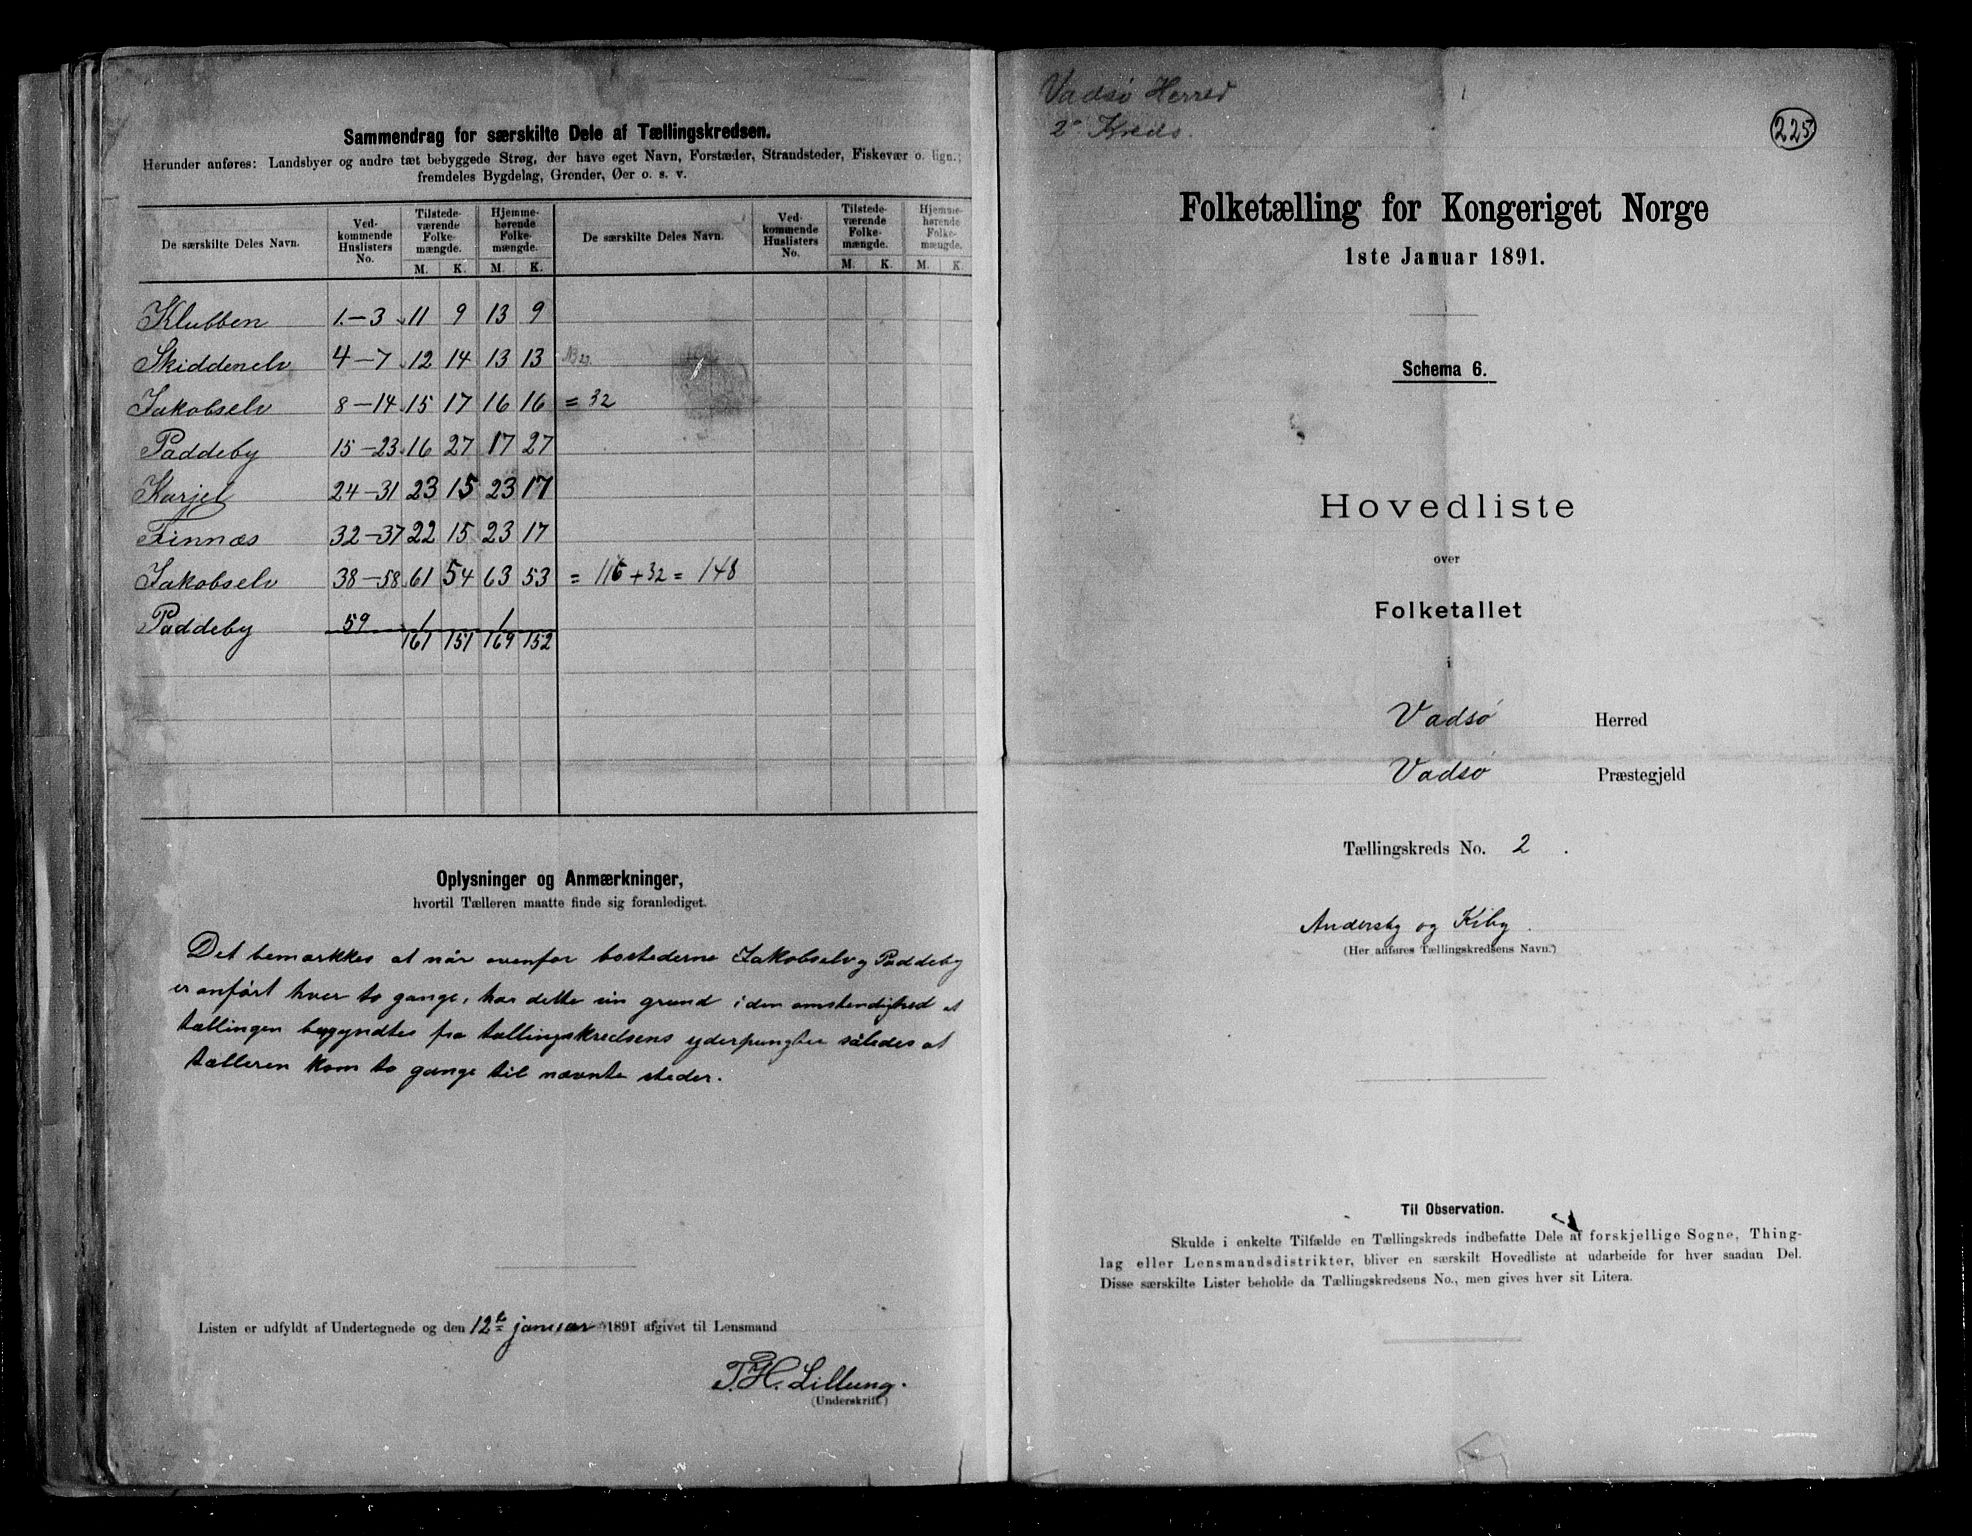 Sammendrag for særskilte Dele af Tællingskredsen.
Herunder anføres: Landsbyer og andre tæt bebyggede Strøg, der have eget Navn, Forstæder, Strandsteder, Fiskevær o. lign.;
fremdeles Bygdelag, Grender, Øer o. s. v.
De særskilte Deles Navn. Ved-kommende Huslisters No. Tilstede-værende Folke-mængde. Hjemme-hørende Folke-mængde. De særskilte Deles Navn. Ved-kommende Huslisters No. Tilstede-værende Folke-mængde. Hjemme-hørende Folke-mængde.
M. K. M. K. M. K. M. K.
Klubben 1.-3 11 9 13 9
Skiddenelv 4-7 12 14 13 13
Jakobselv 8-14 15 17 16 16 = 32
Paddeby 15-23 16 27 17 27
Karjel 24-31 23 15 23 17
Finnæs 32-37 22 15 23 17
Jakobselv 38-58 61 54 63 53 = 116 + 32 = 148
Paddeby 59 1 1
161 151 169 152
Oplysninger og Anmærkninger,
hvortil Tælleren maatte finde sig foranlediget.
Det bemærkkes at når ovenfor bostederne Jakobselv og Paddeby
er anført hver to gange, har dette sin grund i den omstendighed at
tællingen begyndtes fra tællingskredsens yderpungter således at
tælleren kom to gange til nævnte steder.
Listen er udfyldt af Undertegnede og den 12te januar 1891 afgivet til Lensmand
T. H. Lillung.
(Underskrift.)
Vadsø Herred
2 Kreds.
225
Folketælling for Kongeriget Norge
1ste Januar 1891.
Schema 6.
Hovedliste
over
Folketallet
i
Vadsø Herred
Vadsø Præstegjeld
Tællingskreds No. 2.
Andersby og Kiby.
(Her anføres Tællingskredsens Navn.)
Til Observation.
Skulde i enkelte Tilfælde en Tællingskreds indbefatte Dele af forskjellige Sogne, Thing-
lag eller Lensmandsdistrikter, bliver en særskilt Hovedliste at udarbeide for hver saadan Del.
Disse særskilte Lister beholde da Tællingskredsens No., men gives hver sit Litera.